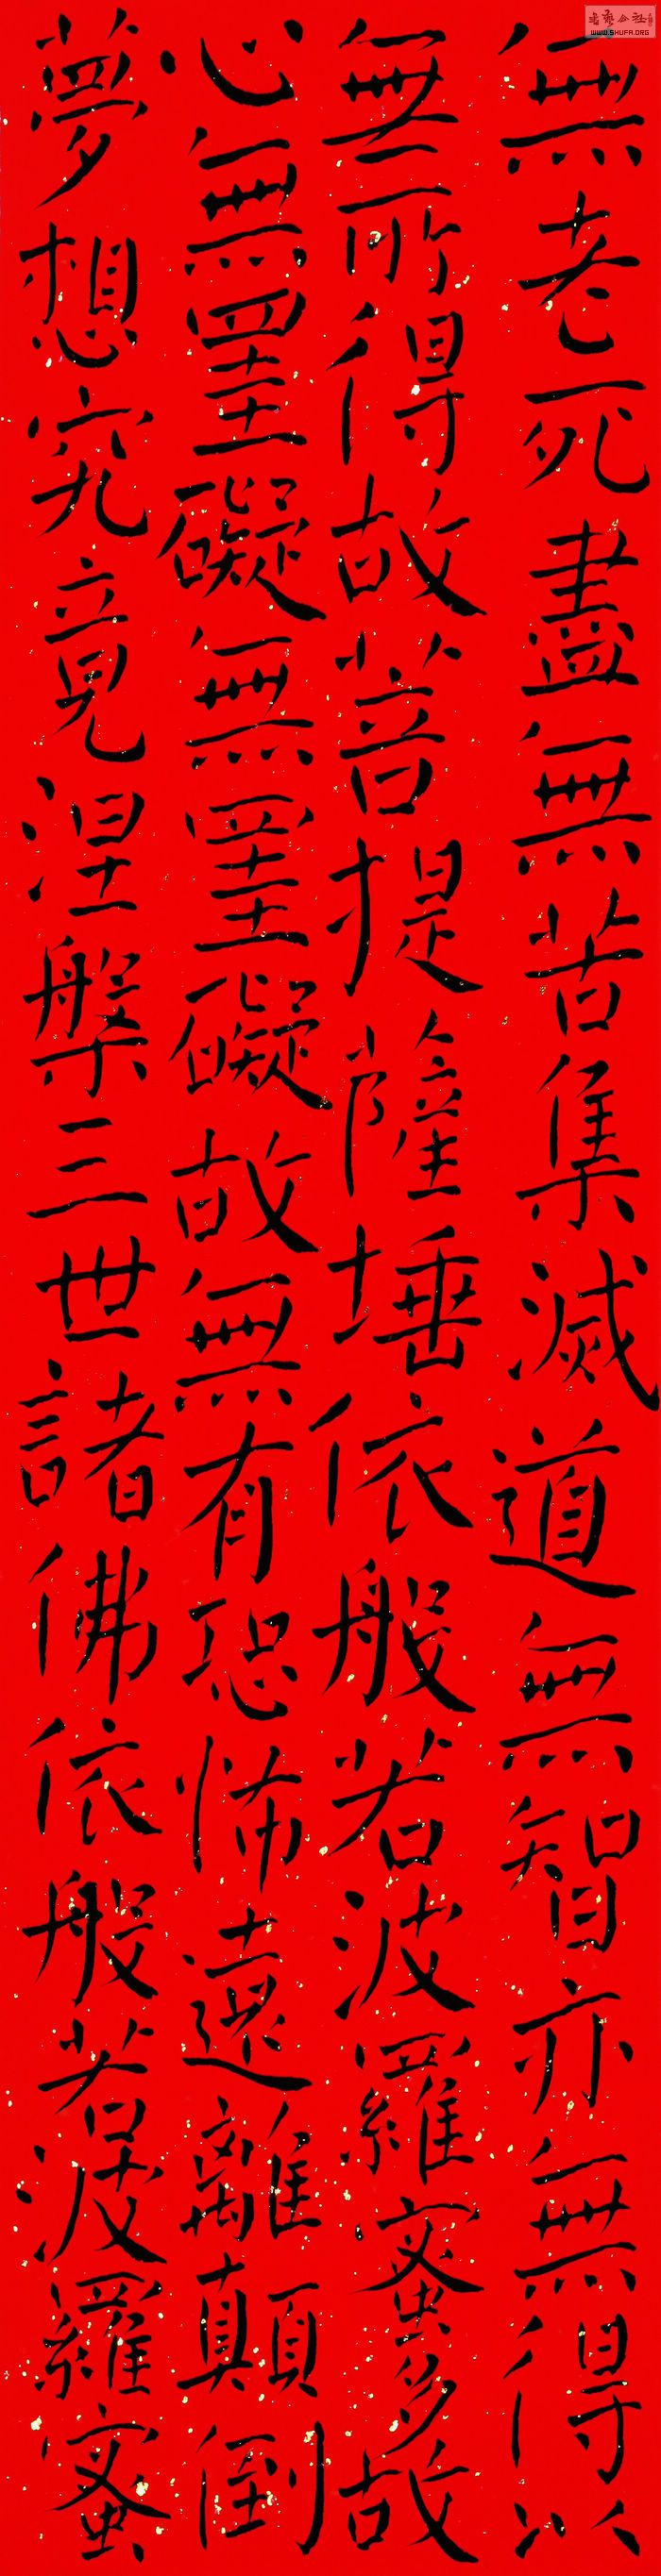 無老死盡無苦集滅道無智亦無得以
無所得故菩提薩埵依般若波羅蜜多故
心無罣礙無罣礙故無有恐怖遠離顛倒
夢想究竟涅槃三世諸佛依般若波羅蜜
WWW.SHUFA.ORG